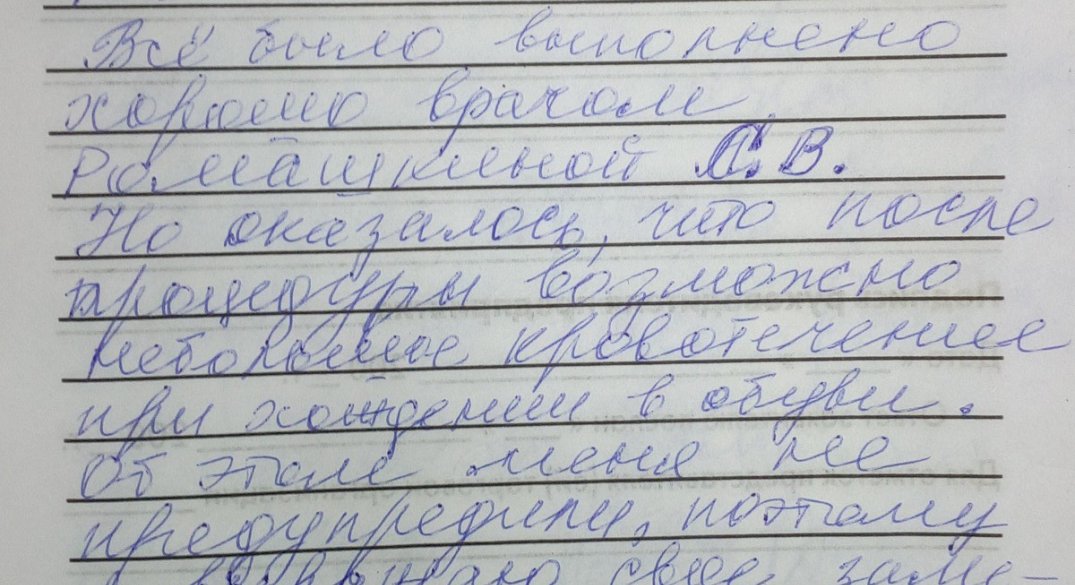 Всё было выполнено
хорошо врачом
Ромашкиной С.В.
Но оказалось, что после
процедуры возможно
небольшое кровотечение
при хождении в обуви.
Об этом меня не
предупредили, поэтому
свое заме-